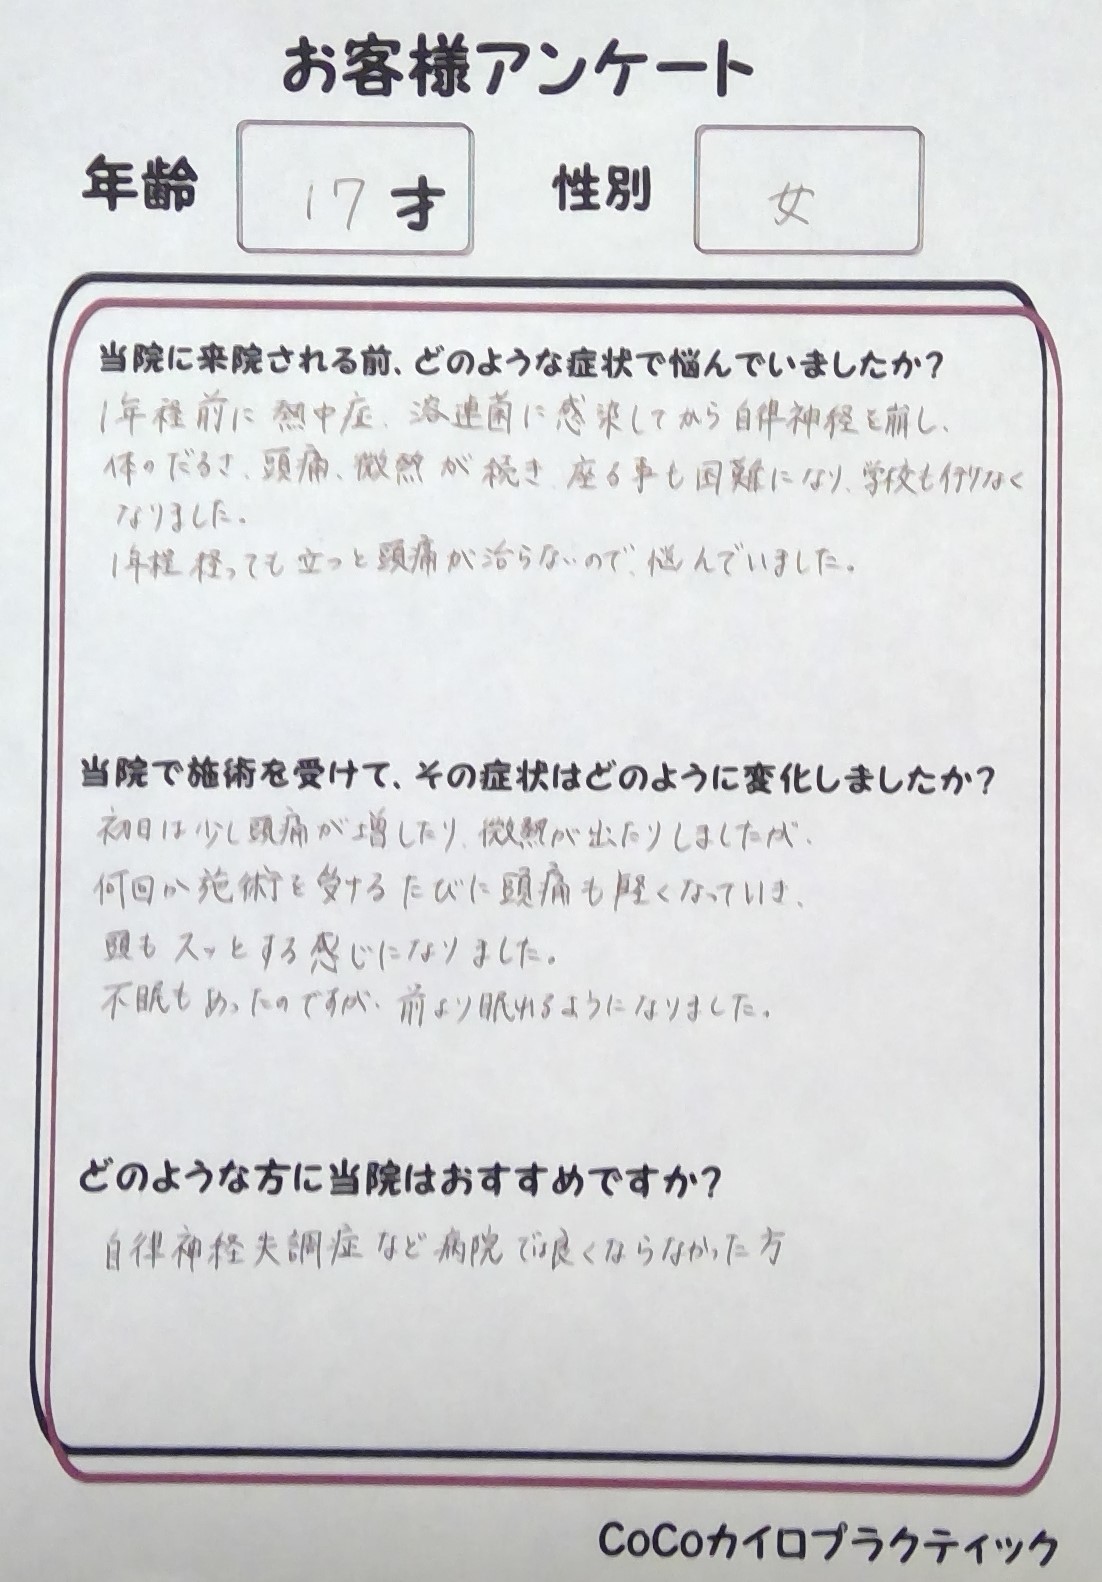 お客様アンケート
年齢 17才 性別 女
当院に来院される前、どのような症状で悩んでいましたか?
1年程前に熱中症、溶連菌に感染してから自律神経を崩し、
体のだるさ、頭痛、微熱が続き、座る事も困難になり、学校も行けなく
なりました。
1年程経っても立つと頭痛が治らないので、悩んでいました。
当院で施術を受けて、その症状はどのように変化しましたか?
初日は少し頭痛が増したり、微熱が出たりしましたが、
何回か施術を受けるたびに頭痛も軽くなっていき、
頭もスッとする感じになりました。
不眠もあったのですが、前より眠れるようになりました。
どのような方に当院はおすすめですか?
自律神経失調症など病院では良くならなかった方
CoCoカイロプラクティック